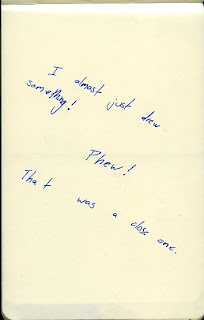 I almost just drew
something!
Phew!
That was a close one.